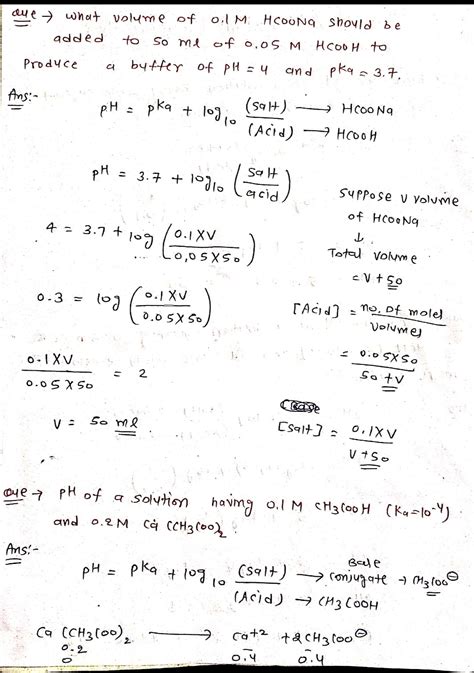 Que → what volume of 0.1 M HCOONa should be
added to 50 ml of 0.05 M HCOOH to
Produce a buffer of pH = 4 and pKa = 3.7.
Ans:-
pH = pKa + log10 (Salt) → HCOONa
(Acid) → HCOOH
pH = 3.7 + log10 (Salt / acid)
Suppose V volume
of HCOONa
↓
4 = 3.7 + log (0.1XV / 0.05X50)
Total volume
= V + 50
0.3 = log (0.1XV / 0.05X50)
[Acid] = no. of moles / volumes
= 0.05X50 / 50 + V
0.1XV / 0.05X50 = 2
V = 50 ml
[Salt] = 0.1XV / V + 50
Que → pH of a solution having 0.1 M CH3COOH (Ka = 10-4)
and 0.2 M Ca (CH3COO)2.
Ans:-
pH = pKa + log10 (Salt) → Base conjugate → CH3COO⊖
(Acid) → CH3COOH
Ca (CH3COO)2 → Ca+2 + 2CH3COO⊖
0.2 - -
0 0.4 0.4